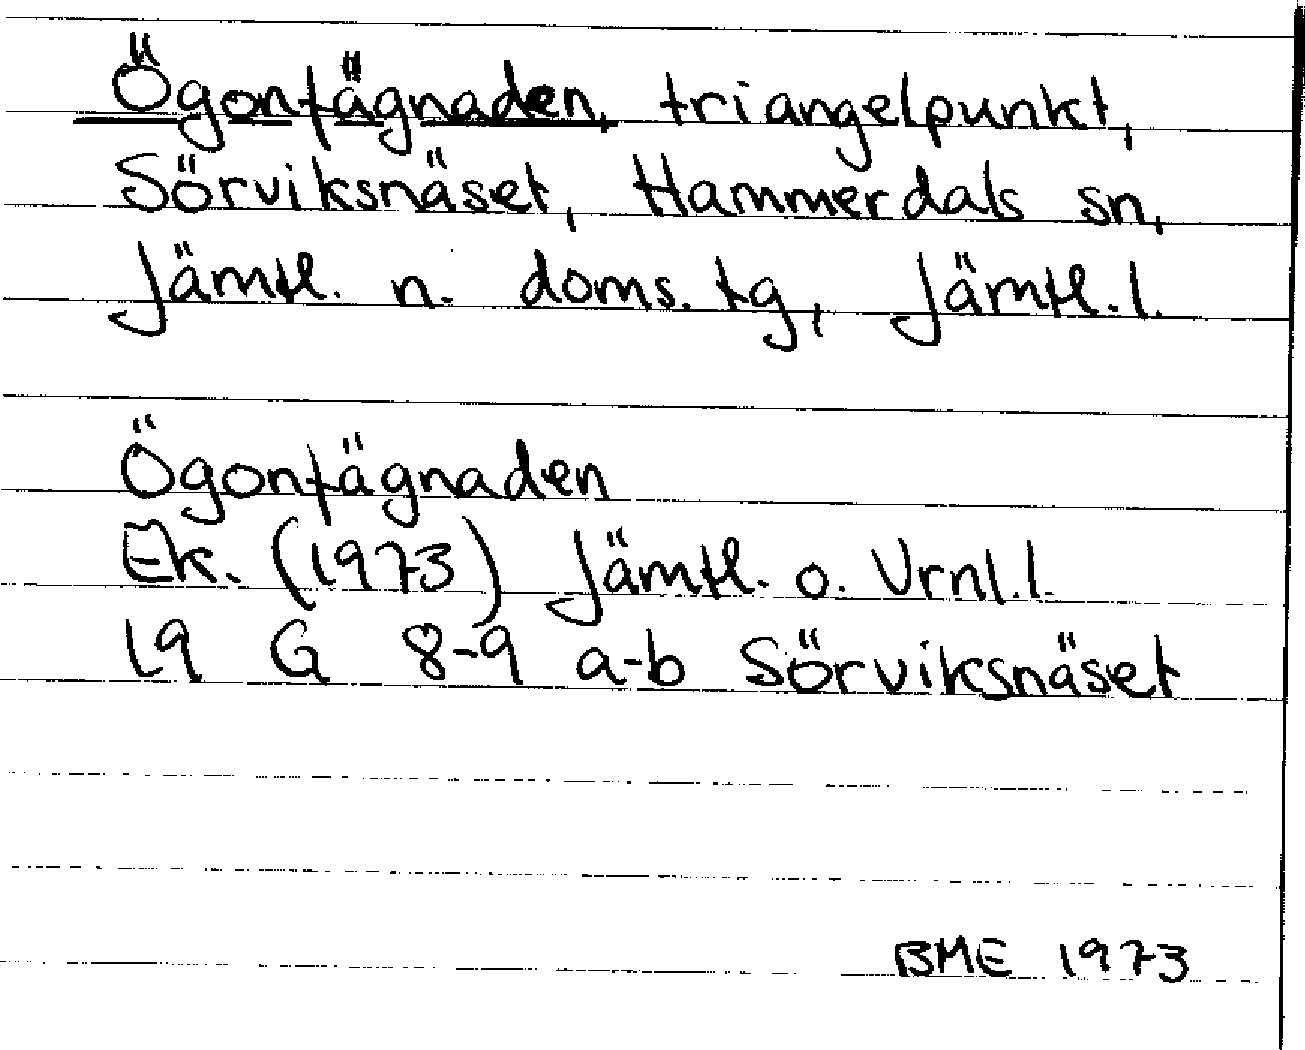 Ögonfägnaden, triangelpunkt,
Sörviksnäset, Hammerdals sn,
Jämtl. n. doms. tg, Jämtl. l.
Ögonfägnaden
Ek. (1973) Jämtl. o. Vrnl. l.
19 G 8-9 a-b Sörviksnäset
BME 1973